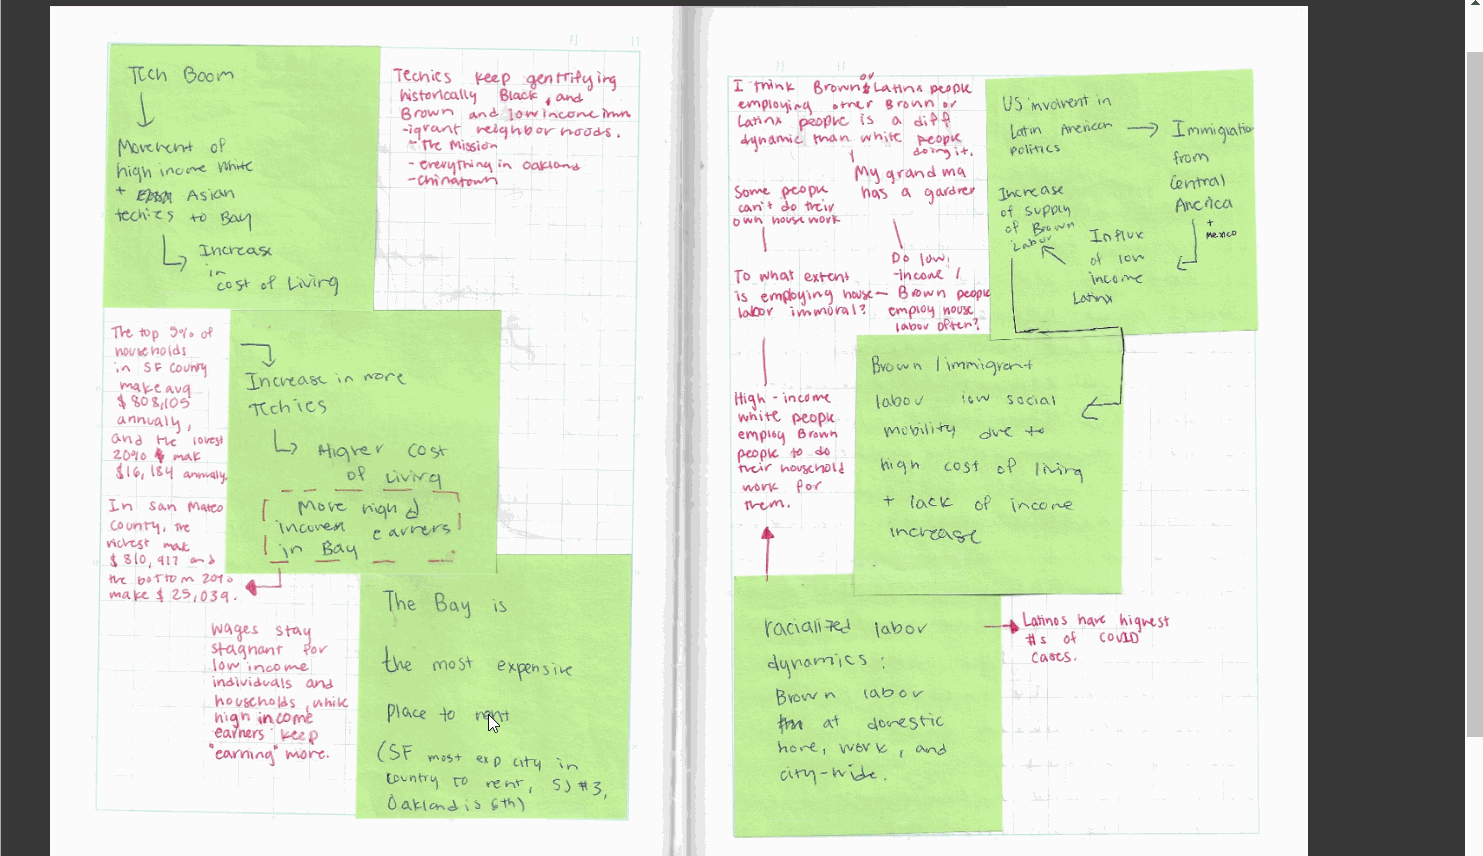 Tech Boom
Movement of
high income white
+ Asian
techies to Bay
Increase
in
cost of Living
Techies keep gentrifying
historically Black, and
Brown and low income imm
-igrant neighborhoods.
- The Mission
- everything in Oakland
- Chinatown
The top 5% of
households
in SF County
make avg
$808,105
annually,
and the lowest
20% mak
$16,184 annually.
Increase in more
Techies
Higher cost
of Living
More high
incomes earners
in Bay
In San Mateo
County, the
richest mak
$810,917 and
the bottom 20%
make $25,039.
wages stay
stagnant for
low income
individuals and
households while
high income
earners keep
"earning" more.
The Bay is
the most expensive
Place to rent
(SF most exp city in
country to rent, SJ #3,
Oakland is 6th)
I think Brown or Latinx people
employing other Brown or
Latinx people is a diff
dynamic than white people
doing it.
My grandma
has a gardner
Some people
can't do their
own housework
Do low
-income /
Brown people
employ house
labor often?
To what extent
is employing house
labor immoral?
High-income
white people
employ Brown
people to do
their household
work for
them.
US involvent in
Latin American
politics
Immigratio
from
Central
America
+
Mexico
Influx
of low
income
Latinx
Increase
of supply
of Brown
Labor
Brown / immigrant
labor low social
mobility due to
high cost of living
+ lack of income
increase
racialized labor
dynamics:
Brown labor
at domestic
home, work, and
city-wide.
Latinos have highest
#s of COVID
cases.